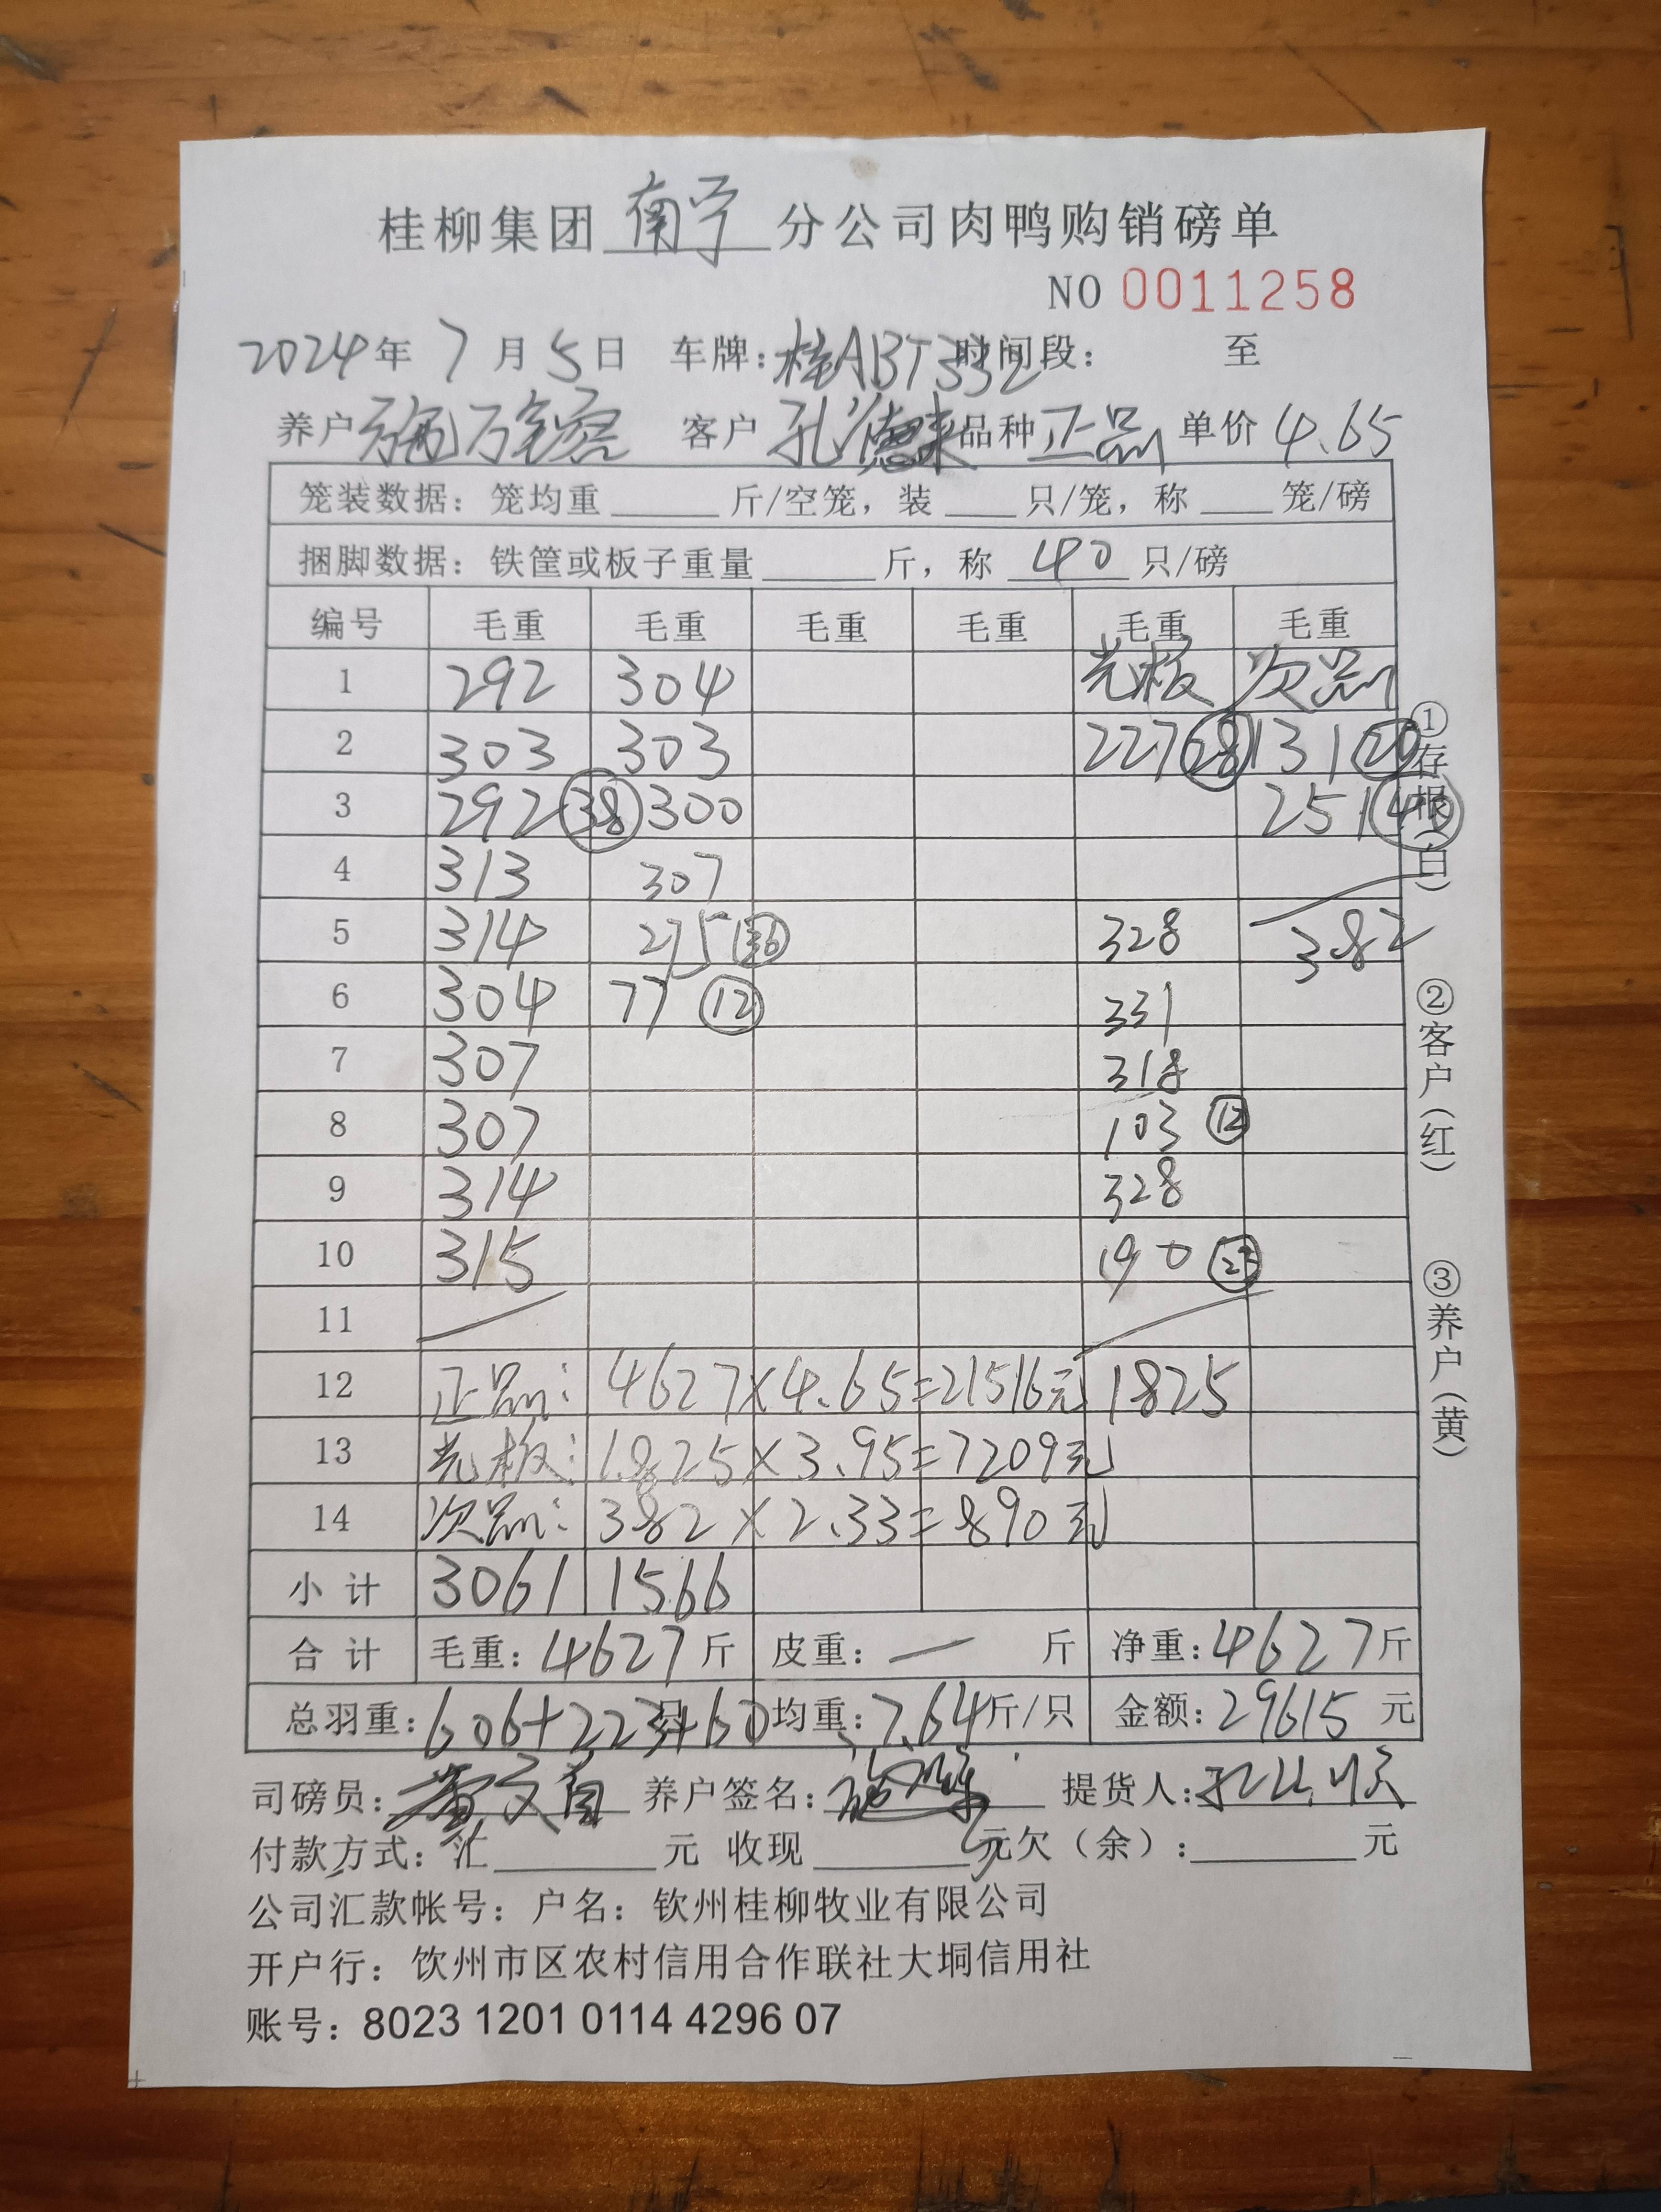 桂柳集团 南宁 分公司肉鸭购销磅单
NO 0011258
2024年 7 月 5 日 车牌:桂ABT332 时间段: 至
养户 客户 孔德来 品种 正品 单价 4.65
笼装数据: 笼均重 斤/空笼, 装 只/笼, 称 笼/磅
捆脚数据: 铁筐或板子重量 斤, 称 40 只/磅
编号 毛重 毛重 毛重 毛重 毛重 毛重
1 292 304 光板 次品
2 303 303 227 28 131 20
3 292 38 300 251 40
4 313 307
5 314 275 36 328 382
6 304 77 12 331
7 307 318
8 307 103 12
9 314 328
10 315 190 23
11
12 正品: 4627×4.65=21516元 1825
13 光板: 1825×3.95=7209元
14 次品: 382×2.33=890元
小 计 3061 1566
合 计 毛重: 4627 斤 皮重: — 斤 净重: 4627 斤
总羽重: 606+223+60 只 均重: 7.64 斤/只 金额: 29615 元
司磅员: 养户签名: 提货人:
付款方式: 汇 元 收现 元 欠(余): 元
公司汇款帐号: 户名: 钦州桂柳牧业有限公司
开户行: 饮州市区农村信用合作联社大垌信用社
账号: 8023 1201 0114 4296 07
①存根(白)
②客户(红)
③养户(黄)